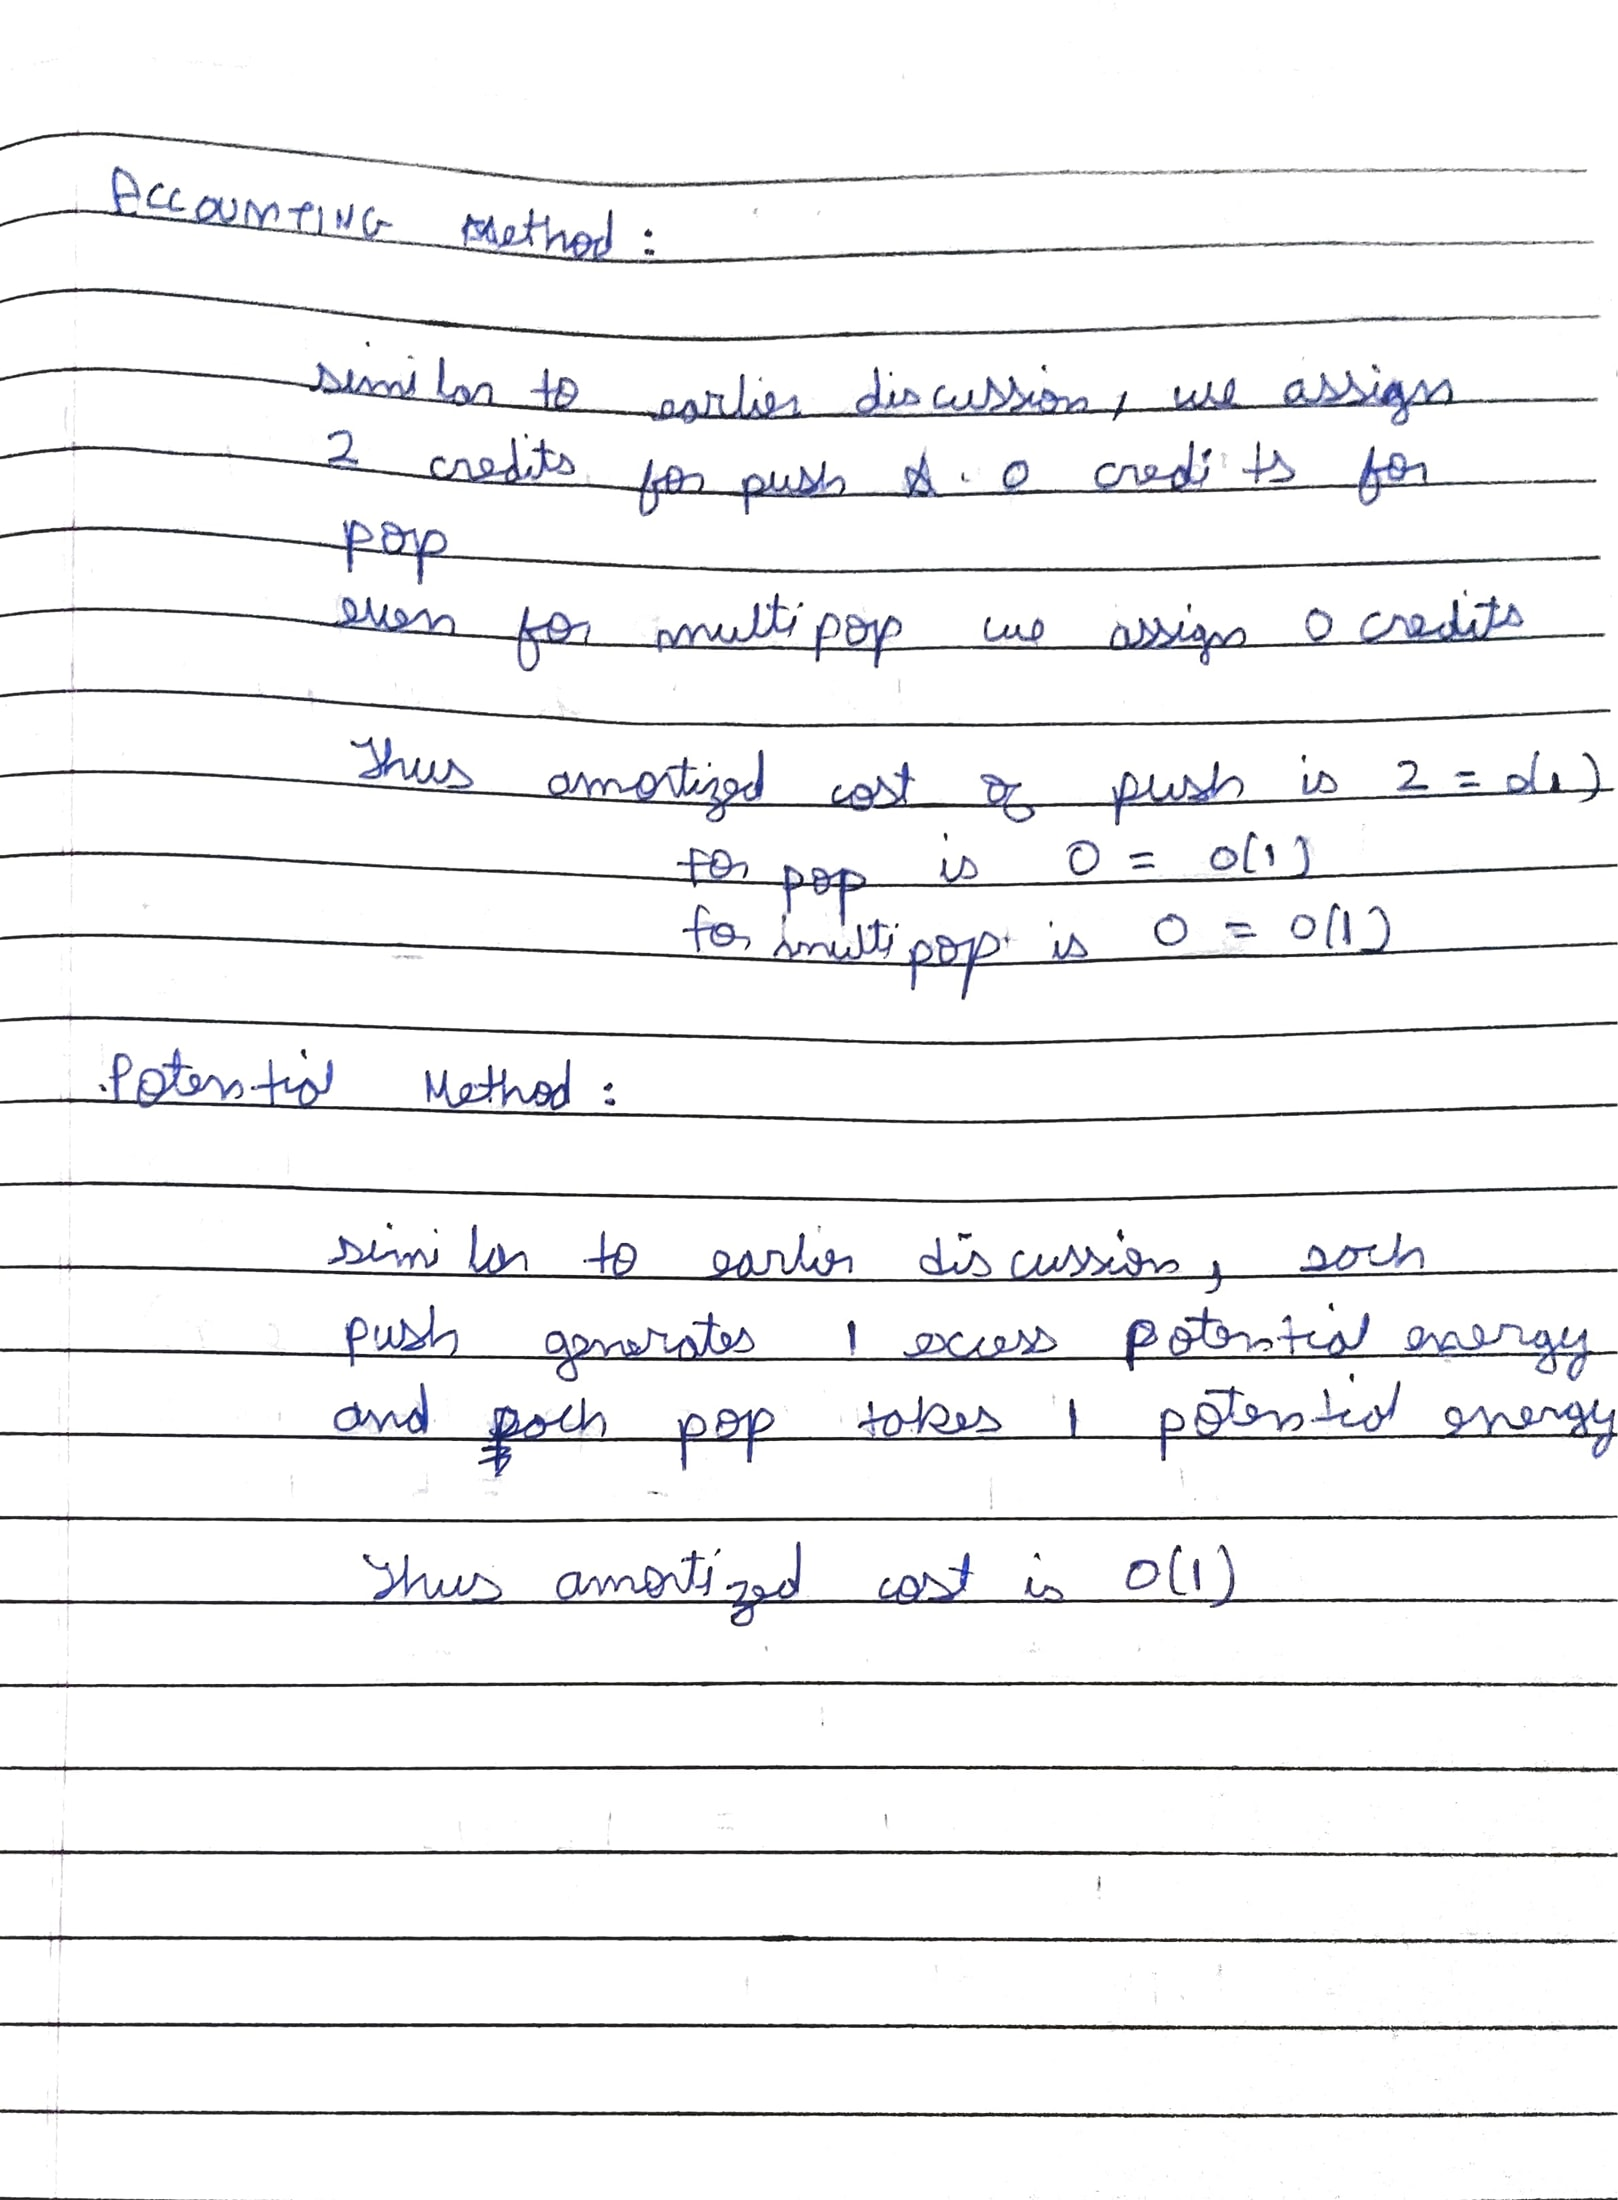 ACCOUNTING Method :
similar to earlier discussion, we assign
2 credits for push & 0 credits for
pop
even for multipop we assign 0 credits
Thus amortized cost of push is 2 = O(1)
for pop is 0 = O(1)
for multipop is 0 = O(1)
Potential Method :
similar to earlier discussion, each
push generates 1 excess potential energy
and each pop takes 1 potential energy
Thus amortized cost is O(1)